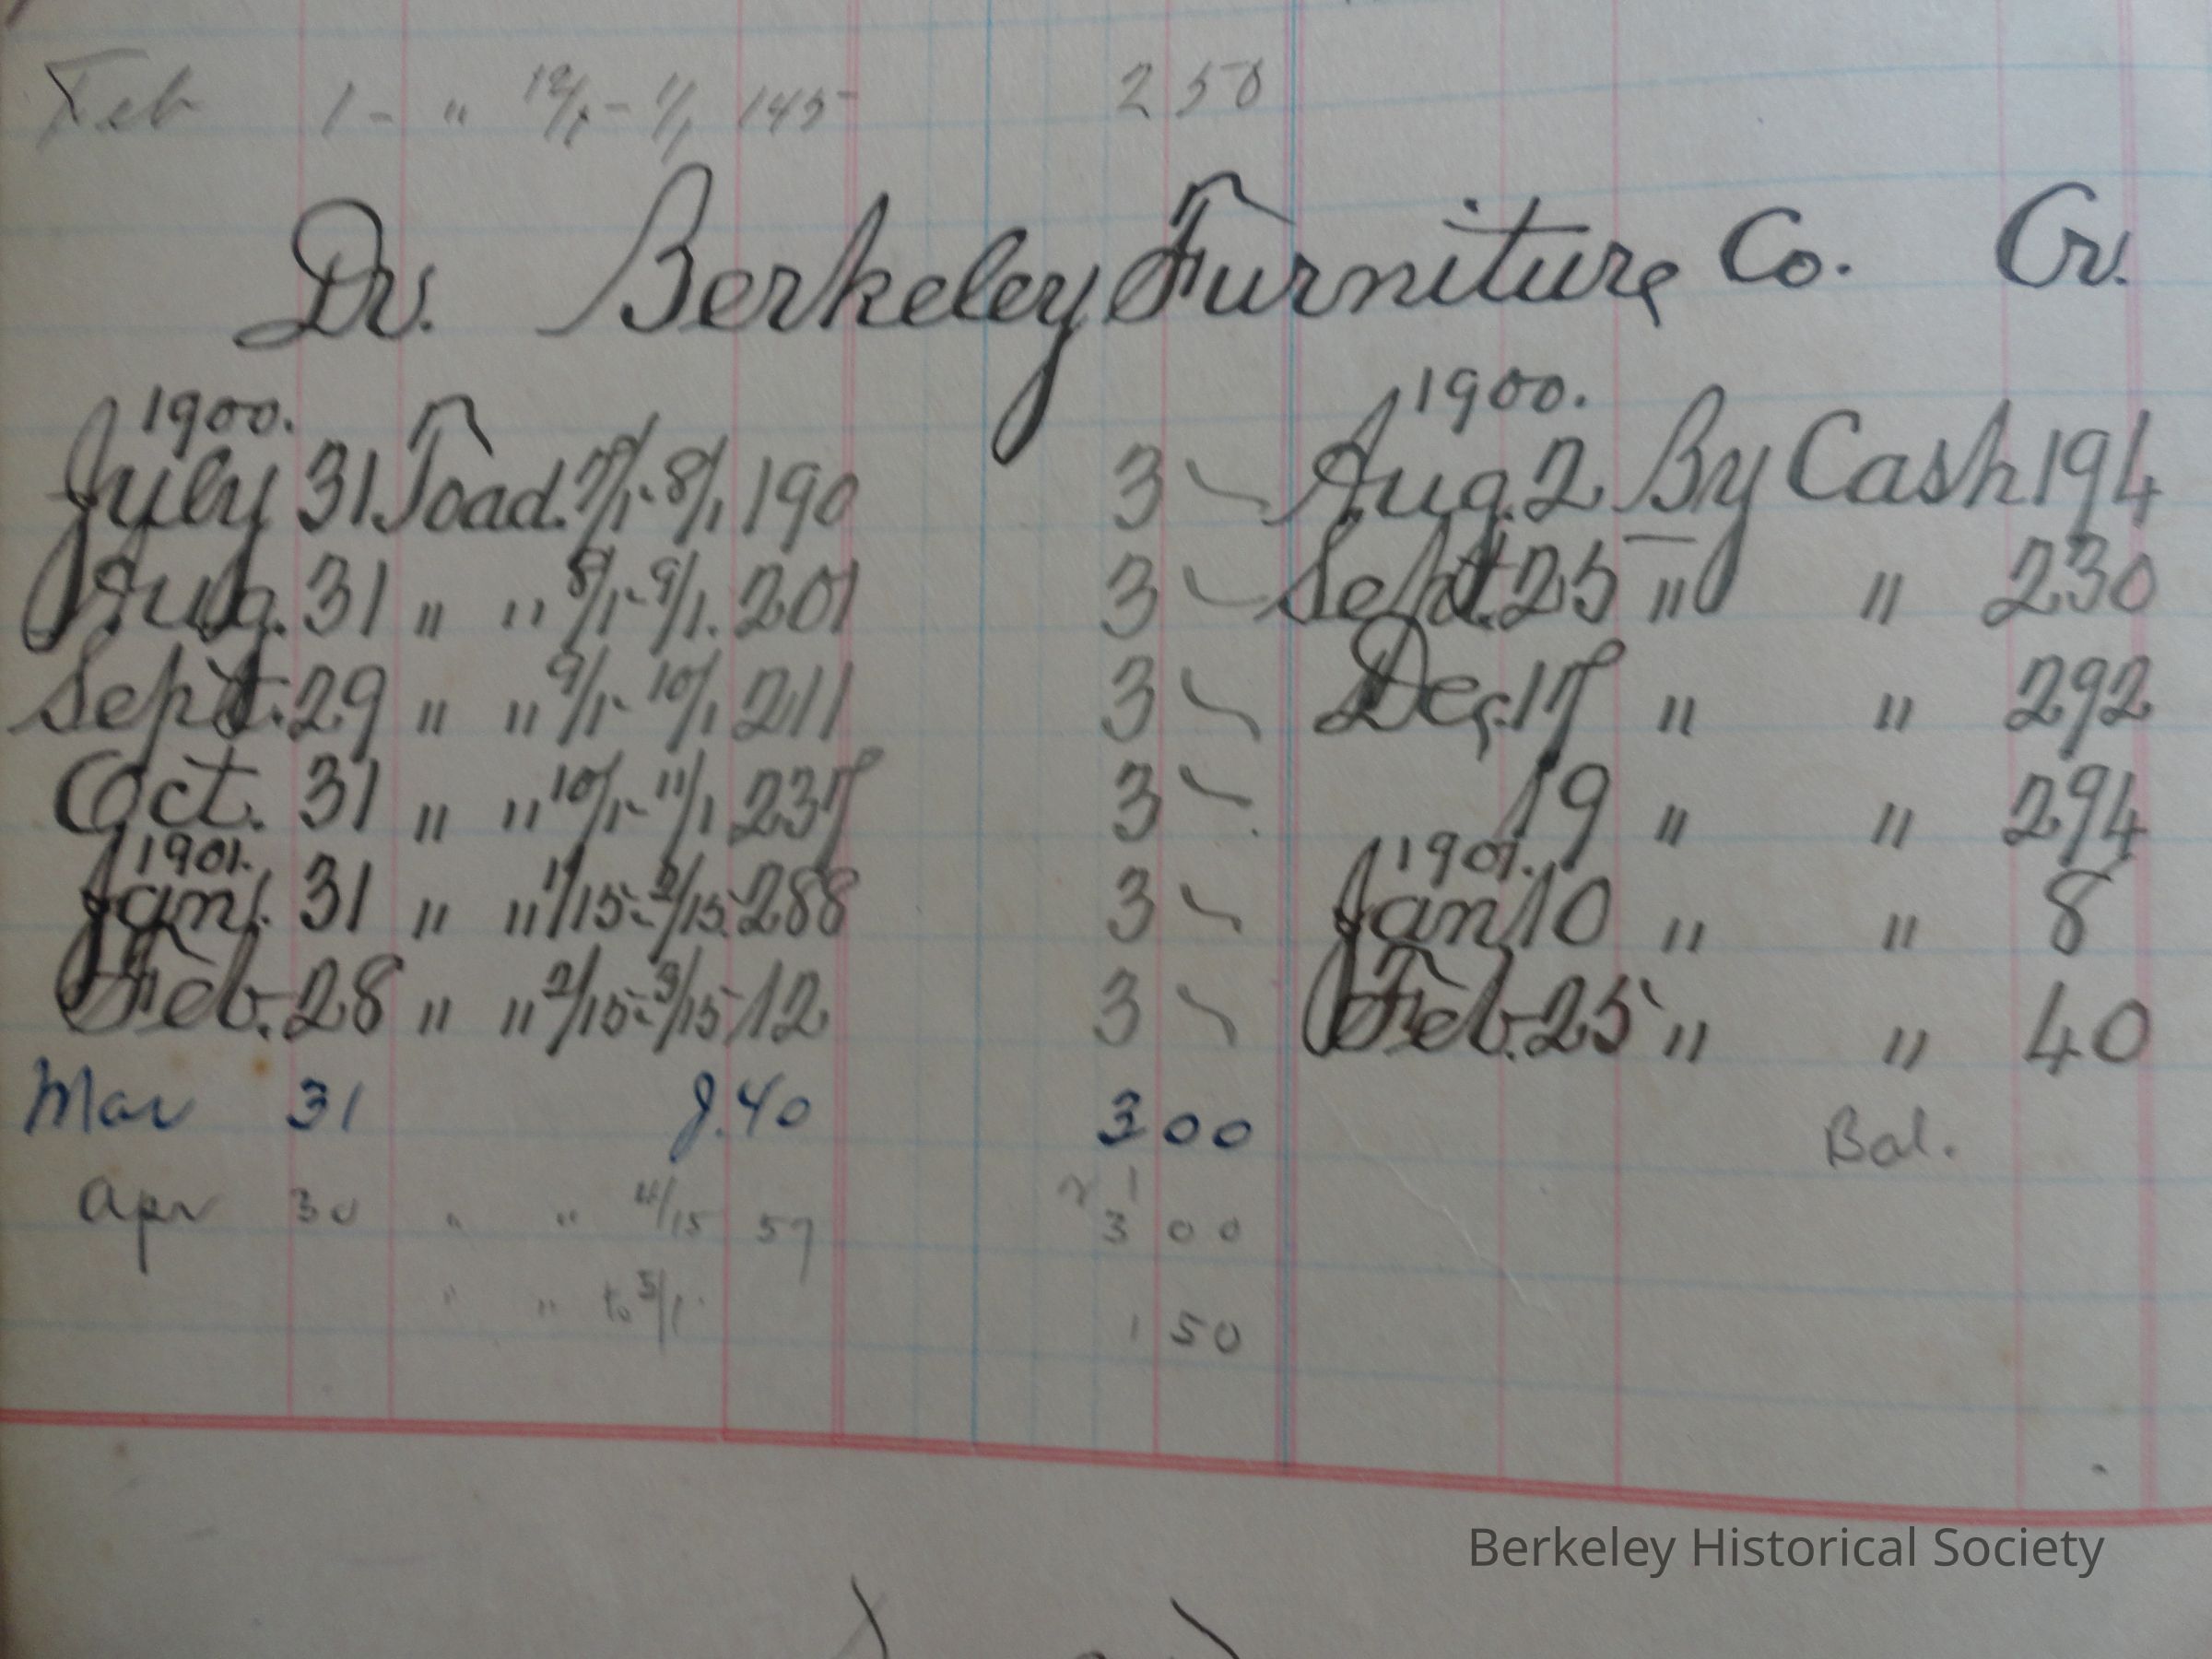 Feb 1 - " 12/1 - 1/1 145 2 50
Dr. Berkeley Furniture Co. Cr.
1900. 1900.
July 31 To ad. 7/1-8/1 190 3 - Aug. 2 By Cash 194
Aug. 31 " " 8/1-9/1. 201 3 - Sept. 25 " " 230
Sept. 29 " " 9/1-10/1 211 3 - Dec. 17 " " 292
Oct. 31 " " 10/1-11/1 237 3 - 19 " " 294
1901. 1901.
Jan. 31 " " 1/15-2/15 288 3 - Jan. 10 " " 8
Feb. 28 " " 2/15-3/15 12 3 - Feb. 25 " " 40
Mar 31 J. 40 3 00 Bal.
21
Apr 30 " " 4/15 57 3 00
" " to 5/1 1 50
Berkeley Historical Society